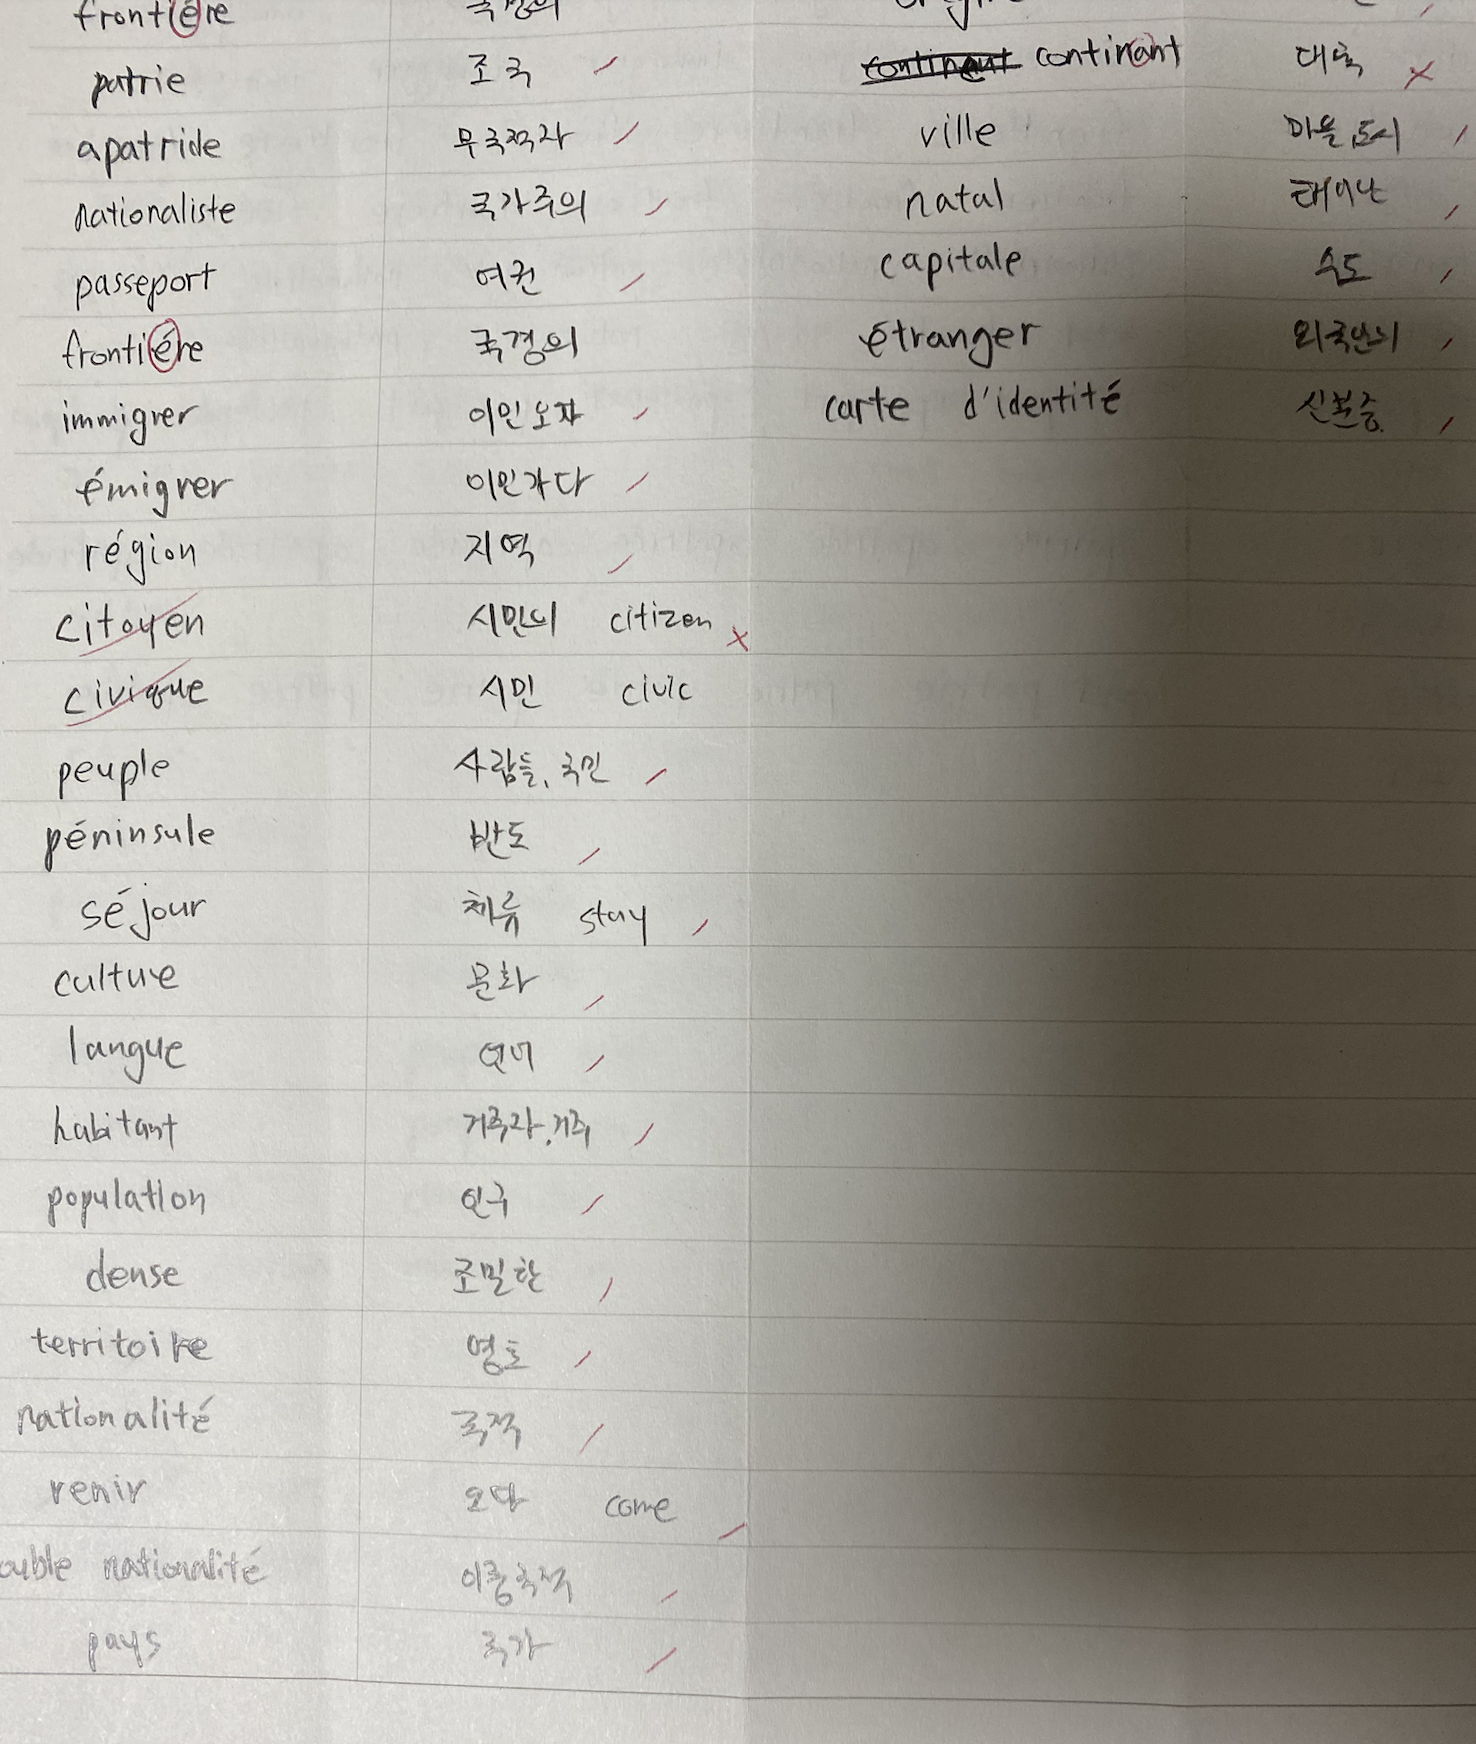 frontiére 국경의
patrie 조국
apatride 무국적자
nationaliste 국가주의
passeport 여권
frontiére 국경의
immigrer 이민오자
émigrer 이민가다
région 지역
citoyen 시민의 citizen
civique 시민 civic
peuple 사람들, 국민
péninsule 반도
séjour 체류 stay
culture 문화
langue 언어
habitant 거주자, 거주
population 인구
dense 조밀한
territoire 영토
nationalité 국적
venir 오다 come
ouble nationalité 이중국적
pays 국가
continant 대륙
ville 마을, 도시
natal 태어난
capitale 수도
étranger 외국인의
carte d'identité 신분증